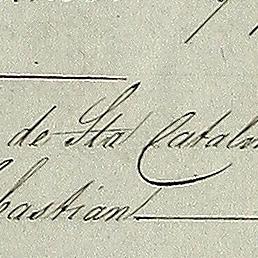 de Sta Catal
bastian